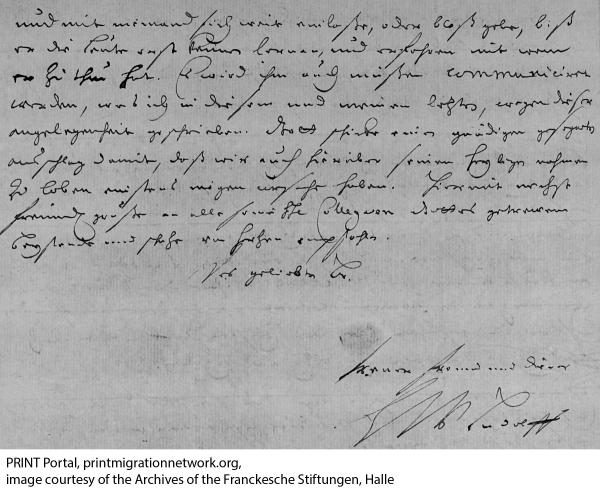 und mit niemand sich weit einlaße, oder bloß gebe, biß
er die Leute erst kennen lernen, und erfahren mit wem
er zu thun hat. Es wird ihm auch müßen communiciret
werden, was ich in diesem und meinem letzten, wegen dieser
angelegenheit geschrieben. Gott schicke einen gnädigen
außschlag damit, daß wir auch hierüber seinen nahmen
zu loben mögen ursache haben. Hiermit nechst
freundl. gruße an alle Collegen Gottes getreuem
Beystande und von hertzen empfohlen.
Des geliebten Br.
Freund und Diener
Ludolff
PRINT Portal, printmigrationnetwork.org,
image courtesy of the Archives of the Franckesche Stiftungen, Halle